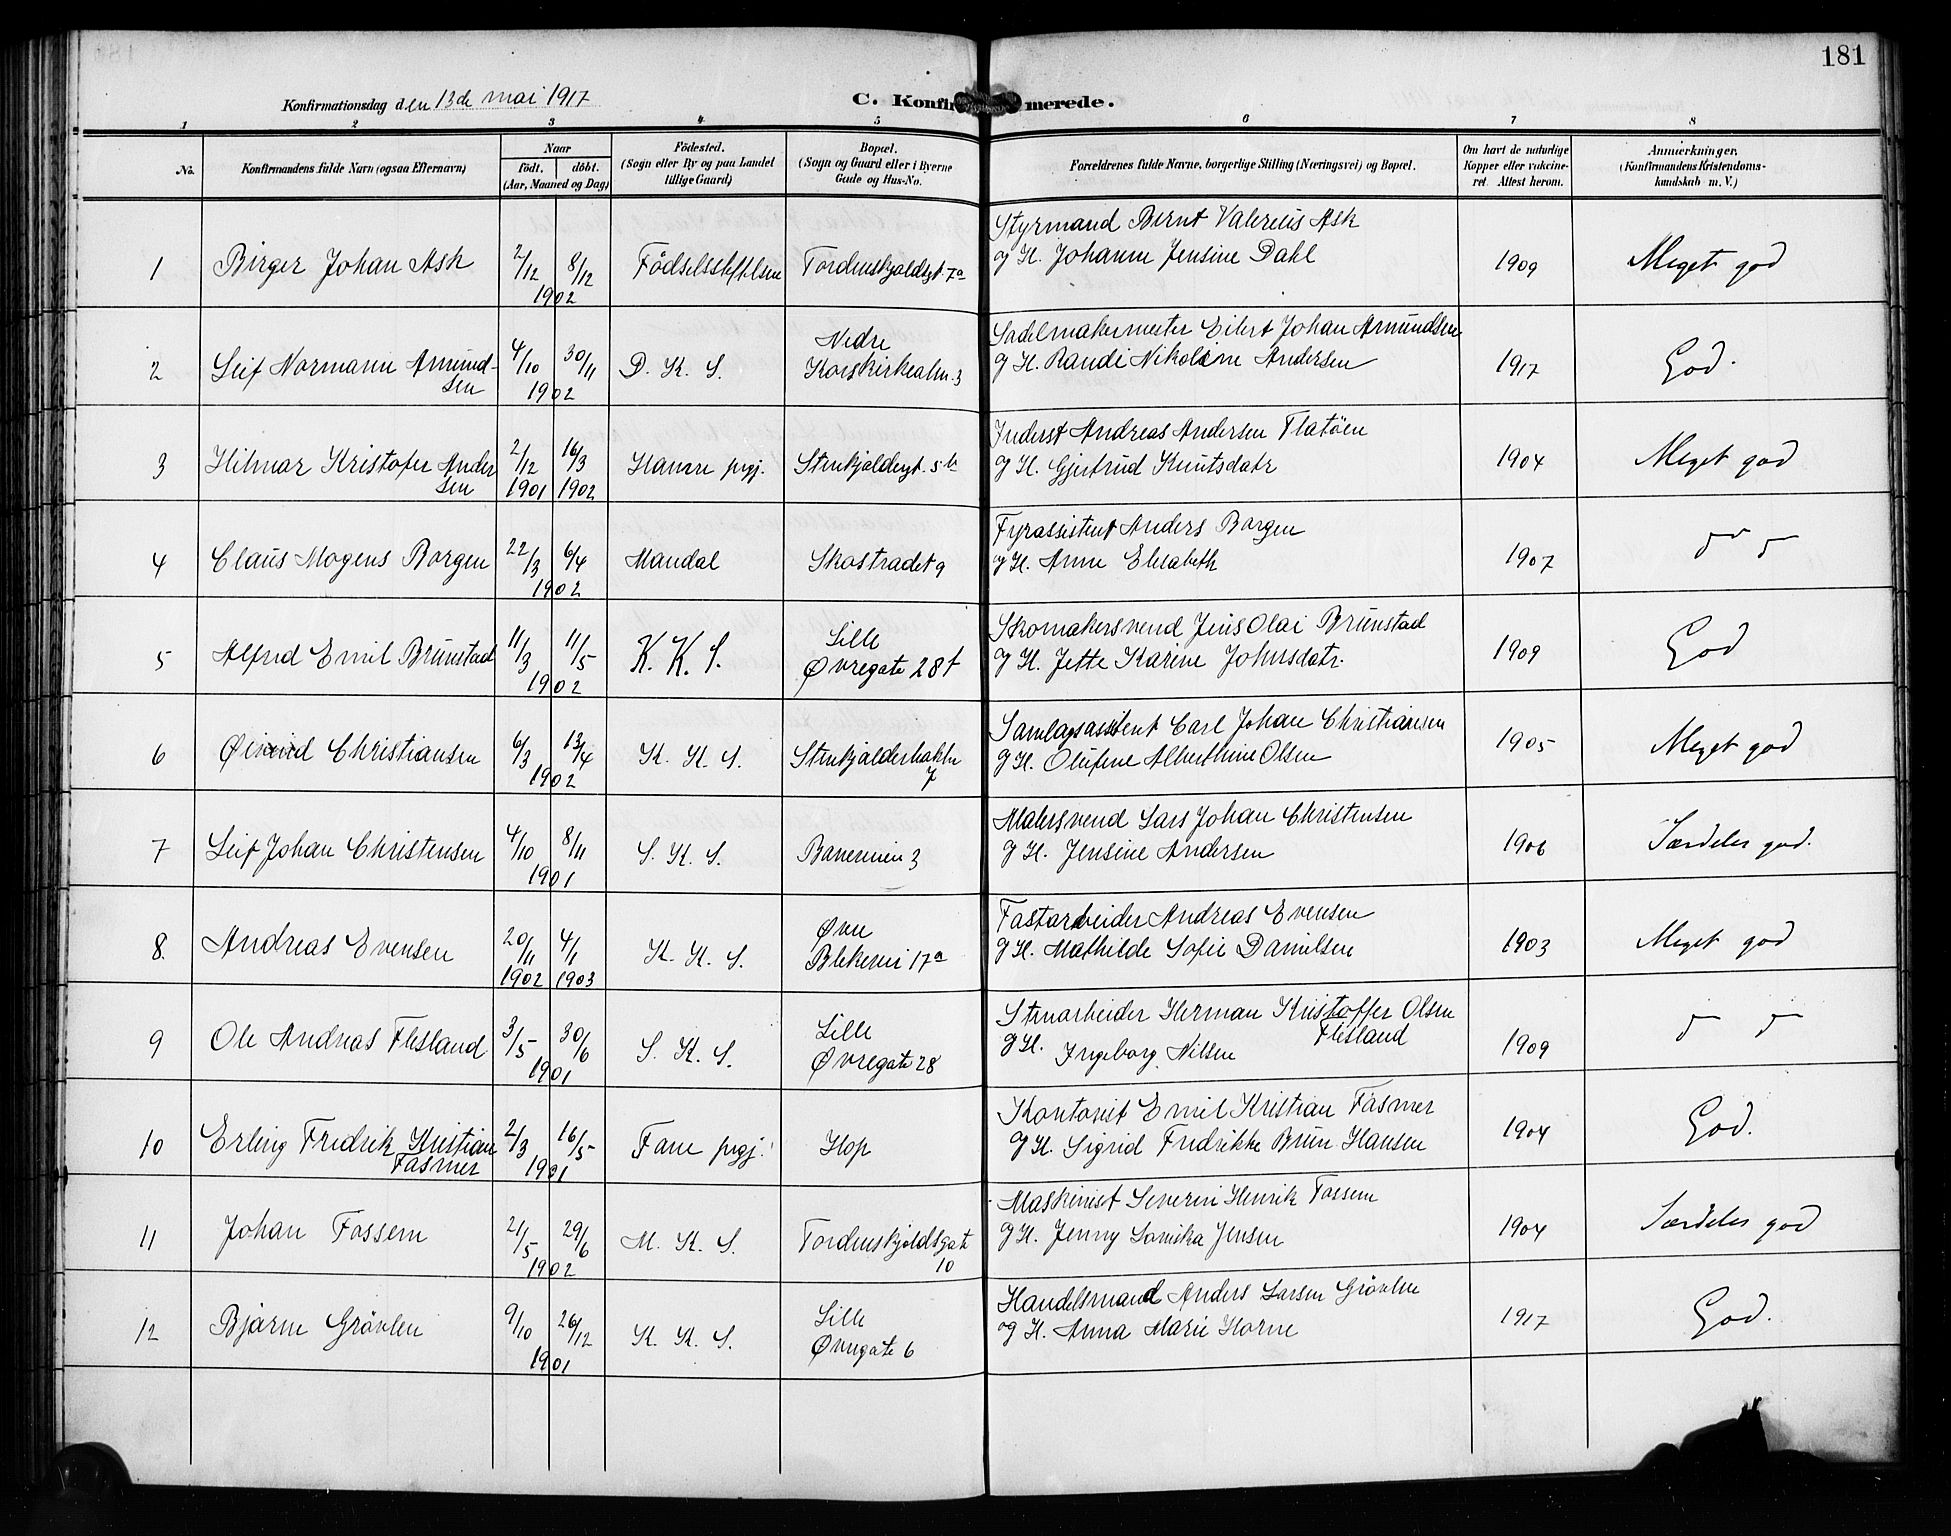 181
Konfirmationsdag den 13de mai 1917
C. Konfirmerede.
1 2 3 4 5 6 7 8
No.
Konfirmandens fulde Navn (ogsaa Efternavn)
Naar
født. døbt.
(Aar, Maaned og Dag)
Fødested.
(Sogn eller By og paa Landet
tillige Gaard)
Bopæl.
(Sogn og Gaard eller i Byerne
Gade og Hus-No.
Forældrenes fulde Navne, borgerlige Stilling (Næringsvei) og Bopæl.
Om havt de naturlige
Kopper eller vakcine-
ret. Attest herom.
Anmærkninger.
(Konfirmandens Kristendoms-
kundskab m. V.)
1 Birger Johan Ask 2/12 8/12 1902 Födselsstiftelsen Tordenskjoldsgt. 7a
Styrmand Bernt Valerius Ask
og H. Johanne Jensine Dahl
1909 Meget god
2 Leif Normann Amund-
sen
4/10 30/11 1902 D. K. S. Nedre
Korskirkealm. 3
Sadelmakermester Eilert Johan Amundsen
og H. Randi Nikoline Andersen
1917 God.
3 Hilmar Kristofer Ander
sen
2/12 1901 16/3 1902 Hamre prgj. Stenkjeldergt. 5b
Inderst Andreas Andersen Flatöen
og H. Gjertrud Knutsdatr
1904 Meget god
4 Claus Mogens Borgen 22/3 6/4 1902 Mandal Skostrædet 9
Fyrassistent Anders Borgen
og H. Anne Elisabeth
1907 do do
5 Alfred Emil Brunstad 11/3 11/5 1902 K. K. S. Lille
Øvregate 28f
Skomakersvend Jens Olai Brunstad
og H. Jette Karine Johnsdatr.
1909 God
6 Øivind Christiansen 6/3 13/4 1902 K. K. S. Stenkjelderbakken
7
Samlagsassistent Carl Johan Christiansen
og H. Olufine Alberthine Olsen
1905 Meget god
7 Leif Johan Christensen 4/10 8/11 1901 S. K. S. Baneveien 3
Malersvend Lars Johan Christensen
og H. Jensine Andersen
1906 Særdeles god.
8. Andreas Evensen 20/11 1902 4/1 1903 K. K. S. Øvre
Blekevei 17a
Fastarbeider Andreas Evensen
og H. Mathilde Sofie Danielsen
1903 Meget god
9 Ole Andreas Flesland 3/5 30/6 1901 S. K. S. Lille
Øvregate 28
Stenarbeider Herman Kristoffer Olsen
Flesland
og H. Ingeborg Nilsen
1909 do do
10 Erling Fredrik Kristian
Fasmer
2/3 16/5 1901 Fane prgj. Hop
Kontorist Emil Kristian Fasmer
og H. Sigrid Fredrikke Brun Hansen
1904 God.
11 Johan Fossem 21/5 29/6 1902 M. K. S. Tordenskjoldsgate
10
Maskinist Severin Henrik Fossem
og H. Jenny Loviska Jensen
1904 Særdeles god
12 Bjarne Grövlen 9/10 26/12 1901 K. K. S. Lille
Øvregate 6
Handelsmand Anders Larsen Grövlen
og H. Anna Marie Horne
1917 God.